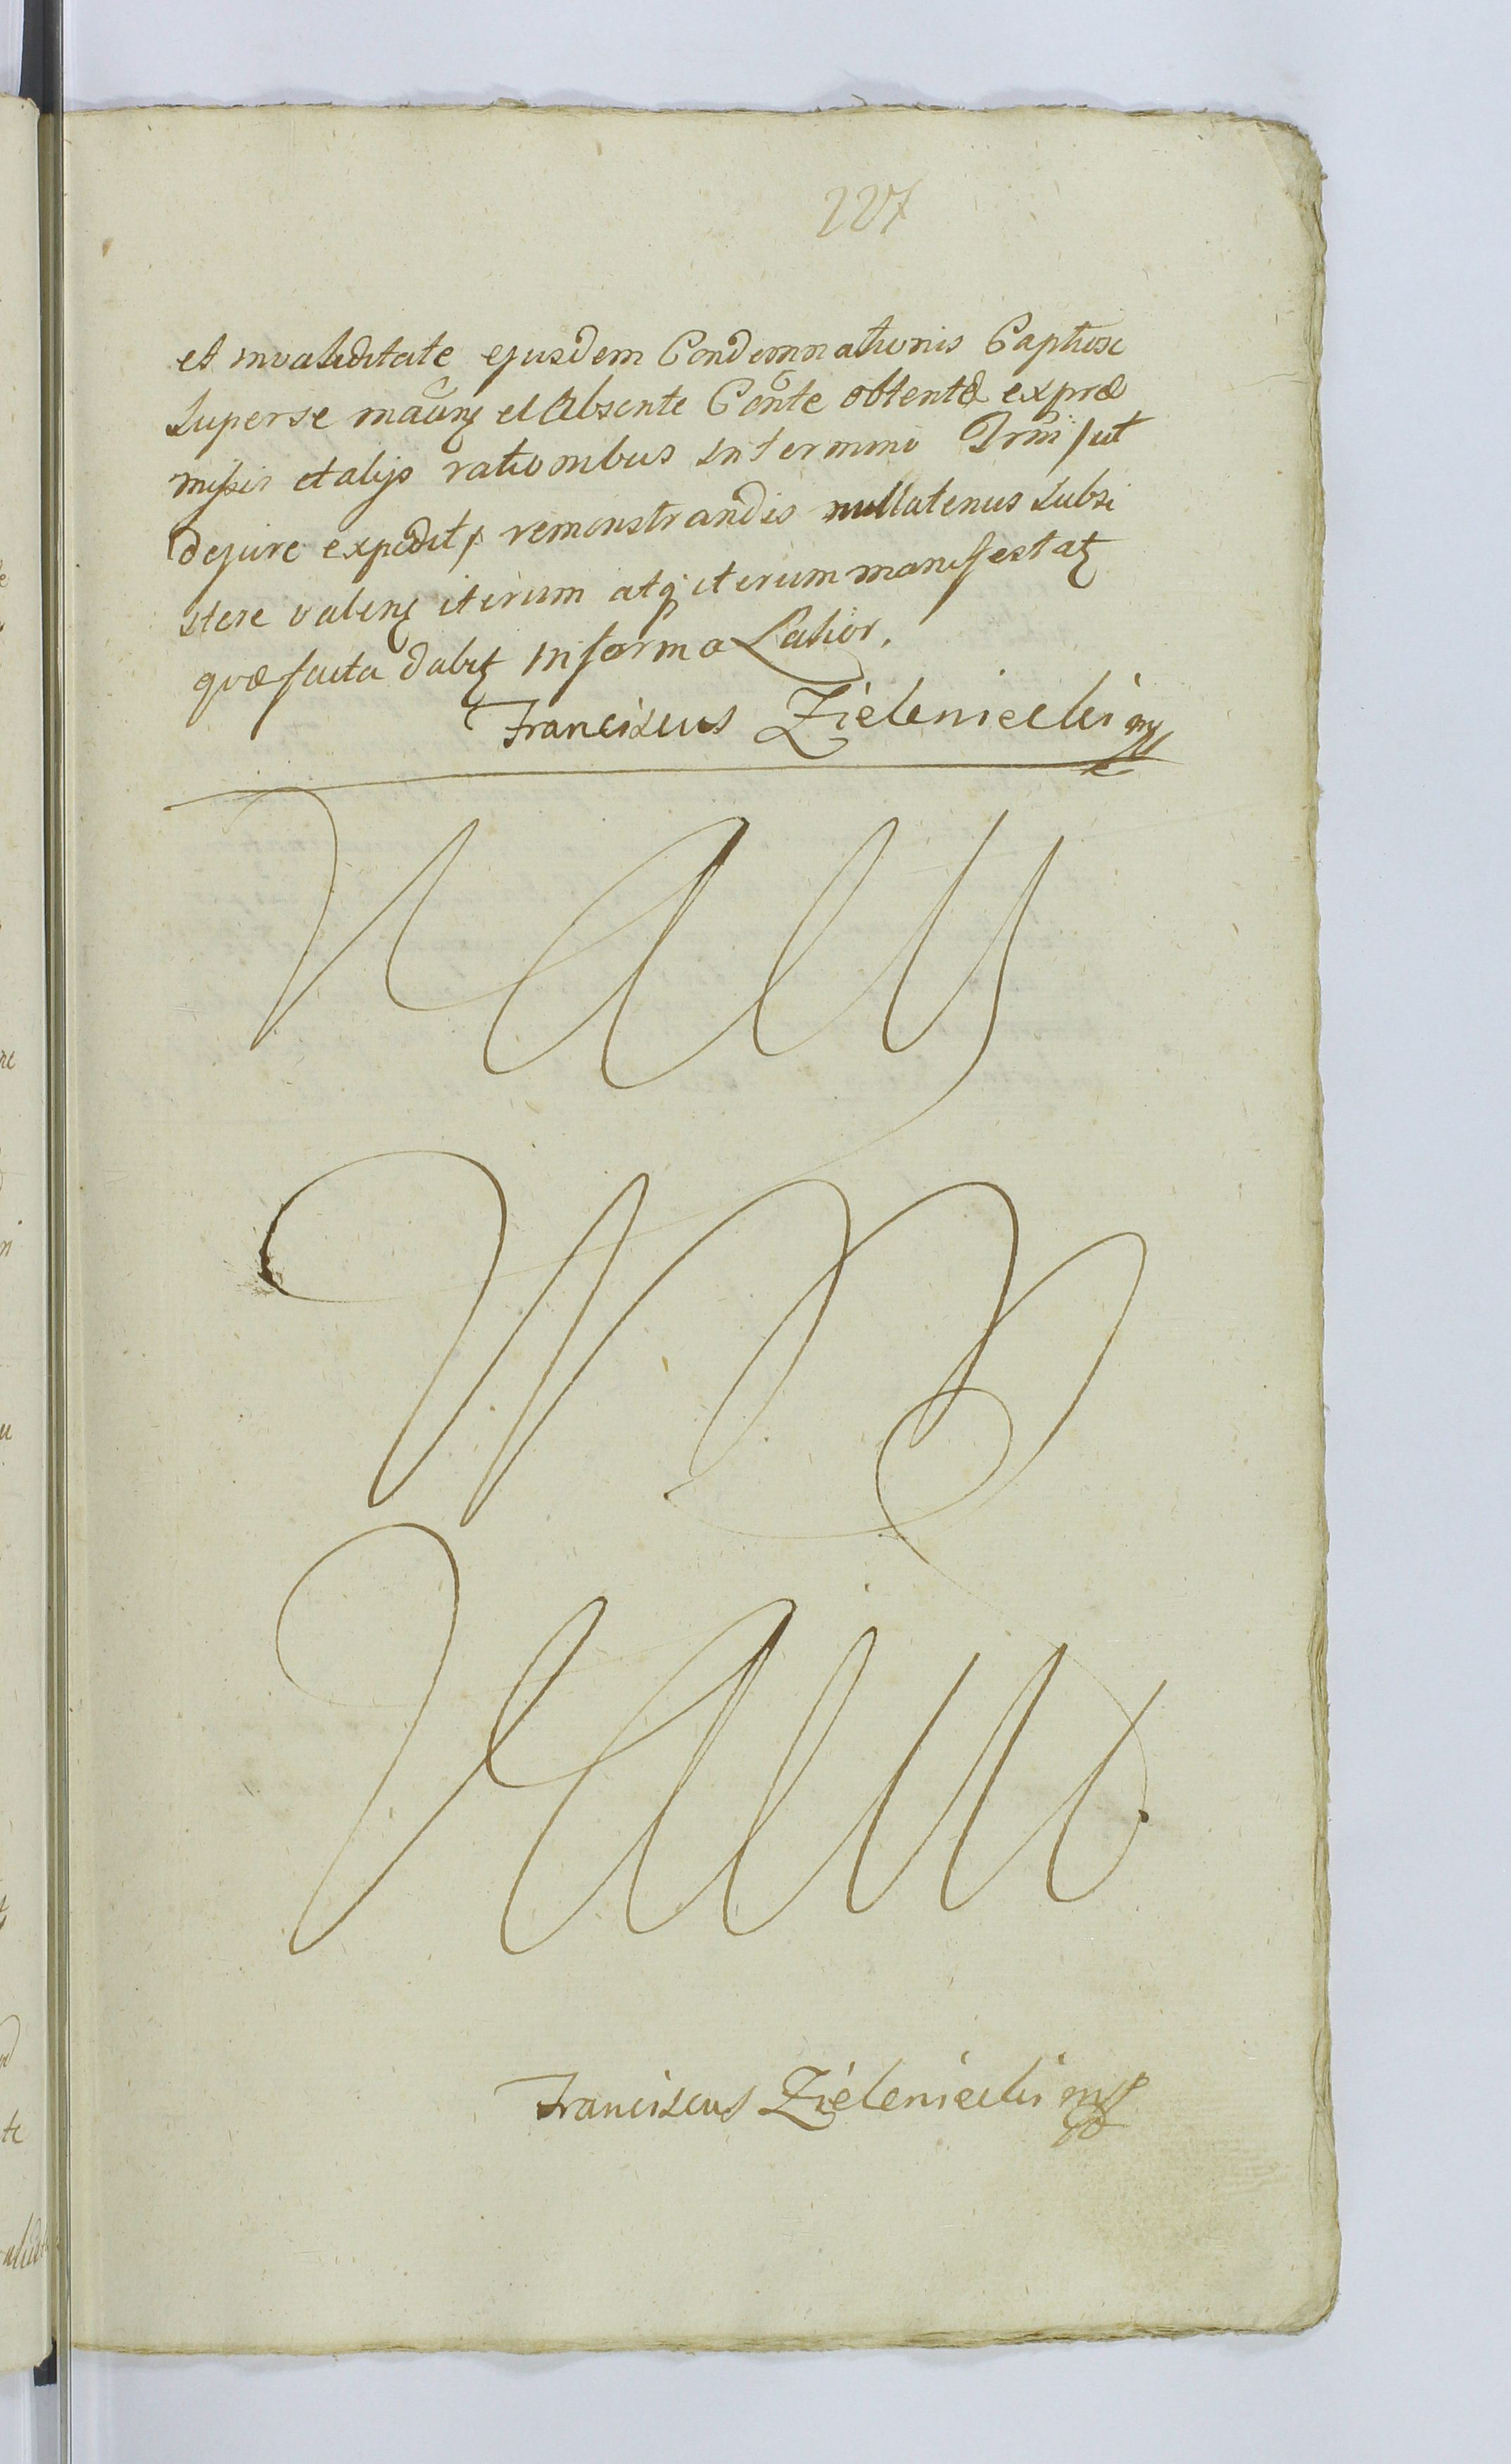 227
et invaliditate ejusdem Condemnationis Captiose
superse et Absente Conte obtentæ expræ
missis et alijs rationibus in termino Trmi /ut
dejure expedit/ remonstrandis nullatenus subsi
stere valen iterum atq iterum manifestat
quæ facta dabit in forma Latior.
Franciscus Zieleniecki mp
Franciscus Zieleniecki mp